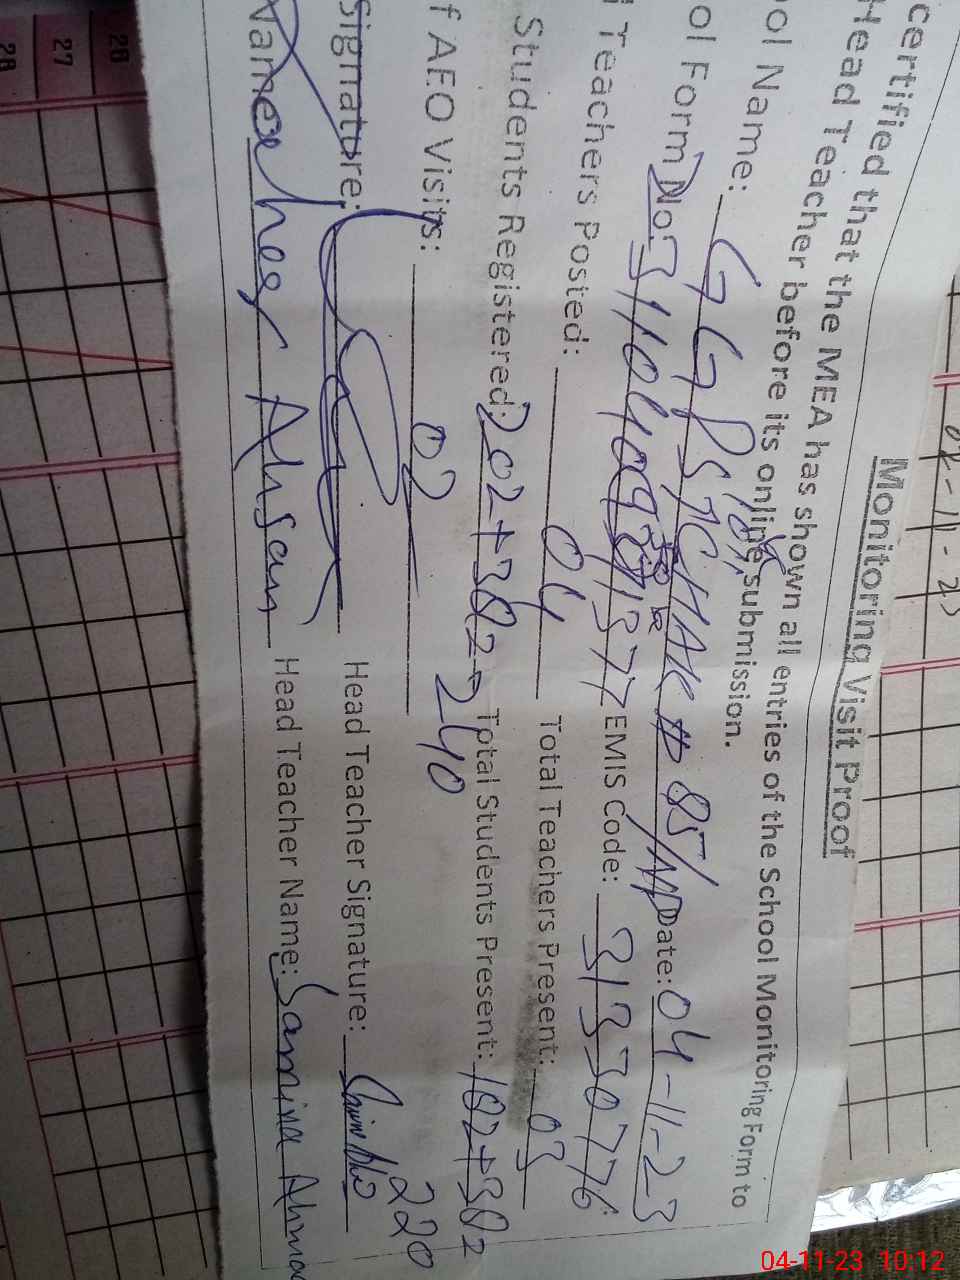 02-11-23
Monitoring Visit Proof
certified that the MEA has shown all entries of the School Monitoring Form to
Head Teacher before its online submission.
ool Name: GGPS 10/1, CHAK # 85/M Date: 04-11-23
ol Form No: 3110409 1377 EMIS Code: 31330776
Teachers Posted: 04 Total Teachers Present: 03
Students Registered: 202+38=240 Total Students Present: 182+38= 220
f AEO Visits: 02
Signature: Head Teacher Signature:
Name: Zaheer Ahsan Head Teacher Name: Samina Ahma
26
27
28
04-11-23 10:12